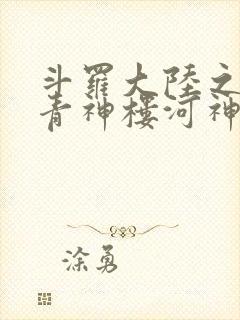 斗羅大陸之
青神樓河神
涂勇